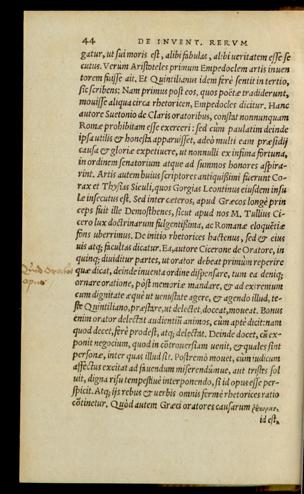 44 DE INVENT. RERVM
gatur, ut sui moris est, alibi fabulas, alibi ueritatem esse se
cutus. Verùm Aristoteles primum Empedoclem artis inuen
torem fuisse ait. Et Quintilianus idem ferè sentit in tertio,
sic scribens: Nam primus post eos, quos poëtæ tradiderunt,
mouisse aliqua circa rhetoricen, Empedocles dicitur. Hanc
autore Suetonio de Claris oratoribus, constat nonnunquam
Romæ prohibitam esse exerceri: sed cùm paulatim deinde
ipsa utilis & honesta apparuisset, adeò multi eam præsidij
causa & gloriæ expetiuere, ut nonnulli ex infima fortuna,
in ordinem senatorium atque ad summos honores aspira-
rint. Artis autem huius scriptores antiquissimi fuerunt Co-
rax et Thysias Siculi, quos Gorgias Leontinus eiusdem insu
læ insecutus est. Sed inter cæteros, apud Græcos longè prin
ceps fuit ille Demosthenes, sicut apud nos M. Tullius Ci-
cero lux doctrinarum fulgentissima, ac Romanæ eloquẽtiæ
fons uberrimus. De initio rhetorices hactenus, sed & eius
uis atq; facultas dicatur. Ea, autore Cicerone de Oratore, in
quinq; diuiditur partes, ut orator debeat primùm reperire
quæ dicat, deinde inuenta ordine dispensare, tum ea deniq;
ornare oratione, pòst memoriæ mandare, & ad extremum
cum dignitate æquè ut uenustate agere, & agendo illud, te-
ste Quintiliano, præstare, ut delectet, doceat, moueat. Bonus
enim orator delectat audientiũ animos, cùm aptè dicit: nam
quod decet, ferè prodest, atq; delectat. Deinde docet, cũ ex-
ponit negocium, quod in cõtrouersiam uenit, & quales sint
personæ, inter quas illud sit. Postremò mouet, cùm iudicum
affectus excitat ad fauendum miserendúmue, aut tristes sol
uit, digna risu tempestiuè interponendo, si id opus esse per-
spicit. Atq; ijs rebus & uerbis omnis fermè rhetorices ratio
cõtinetur. Quòd autem Græci oratores causarum
id est,
Quid Orator